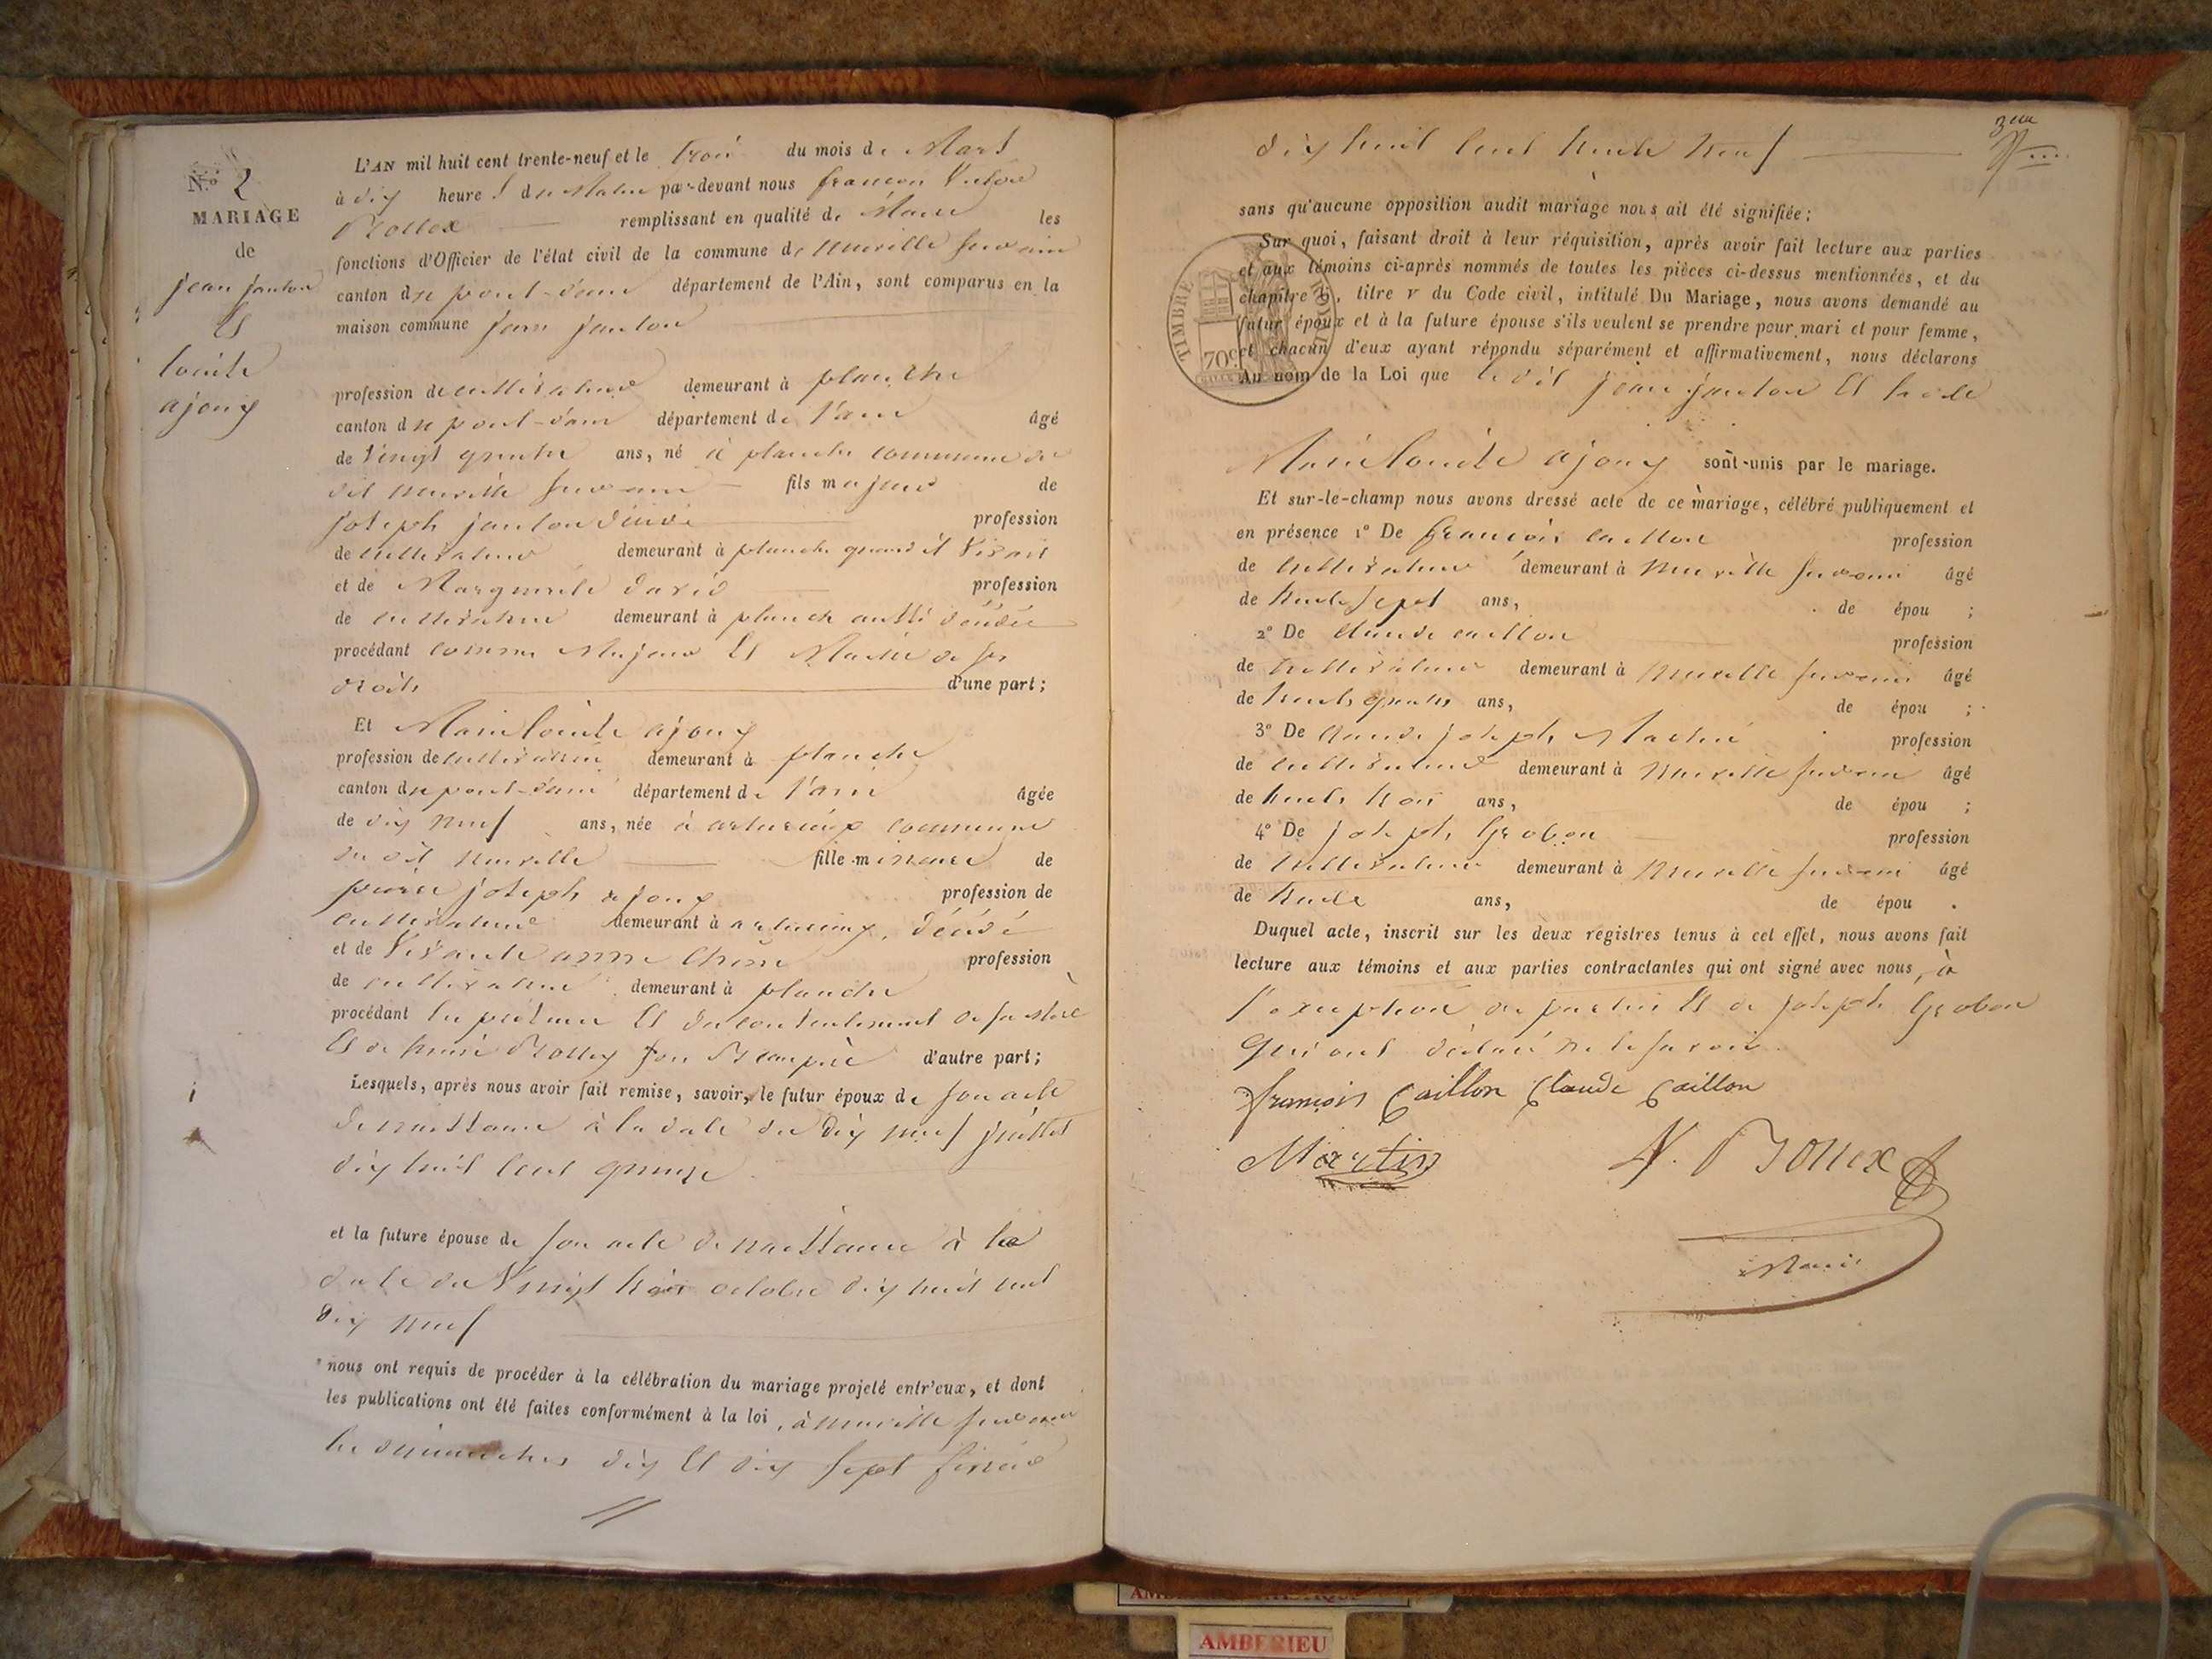 N.º 2
MARIAGE
de
jean janton
Et
louise
ajoux
L'AN mil huit cent trente-neuf et le trois du mois de Mars
à dix heures du Matin par-devant nous françois Victoire
Brollex remplissant en qualité de Maire les
fonctions d'Officier de l'état civil de la commune de neuville sur ain
canton de pont-dain département de l'Ain, sont comparus en la
maison commune jean janton
profession de cultivateur demeurant à planche
canton de pont-dain département de l'ain âgé
de vingt quatre ans, né à planche commune du
dit neuville sur ain fils majeur de
joseph janton décédé profession
de cultivateur demeurant à planche quand il vivait
et de Marguerite david profession
de cultivatrice demeurant à planche aussi décédée
procédant comme Majeur Et Maitre de ses
droits d'une part;
Et Marie louise ajoux
profession de cultivatrice demeurant à planche
canton de pont-dain département de l'ain âgée
de dix neuf ans, née à commune
du dit neuville fille mineure de
pierre joseph ajoux profession de
cultivateur demeurant à décédé
et de anne profession
de cultivatrice demeurant à planche
procédant du consentement de sa Mère
Et de son Beaupère d'autre part;
Lesquels, après nous avoir fait remise, savoir, le futur époux de son acte
de naissance à la date du dix neuf juillet
dix huit cent quinze
et la future épouse de son acte de naissance à la
date du vingt trois octobre dix huit cent
dix neuf
nous ont requis de procéder à la célébration du mariage projeté entr'eux, et dont
les publications ont été faites conformément à la loi, à neuville sur ain
les dimanches dix Et dix sept février
dix huit cent trente neuf
sans qu'aucune opposition audit mariage nous ait été signifiée;
Sur quoi, faisant droit à leur réquisition, après avoir fait lecture aux parties
et aux témoins ci-après nommés de toutes les pièces ci-dessus mentionnées, et du
chapitre 6, titre v du Code civil, intitulé Du Mariage, nous avons demandé au
futur époux et à la future épouse s'ils veulent se prendre pour mari et pour femme,
et chacun d'eux ayant répondu séparément et affirmativement, nous déclarons
Au nom de la Loi que le dit jean janton Et la dite
TIMBRE ROYAL
70c
Marie louise ajoux sont unis par le mariage.
Et sur-le-champ nous avons dressé acte de ce mariage, célébré publiquement et
en présence 1º De françois caillon profession
de cultivateur demeurant à neuville sur ain âgé
de trente sept ans, de épou ;
2º De Claude caillon profession
de cultivateur demeurant à neuville sur ain âgé
de trente quatre ans, de épou ;
3º De Claude joseph Martin profession
de cultivateur demeurant à neuville sur ain âgé
de trente trois ans, de épou ;
4º De joseph Grobon profession
de cultivateur demeurant à neuville sur ain âgé
de trente ans, de épou .
Duquel acte, inscrit sur les deux registres tenus à cet effet, nous avons fait
lecture aux témoins et aux parties contractantes qui ont signé avec nous, à
l'exception des parties Et de joseph Grobon
qui ont déclaré ne le savoir.
françois Caillon Claude Caillon
Martin V. Brollex
Maire
AMBERIEU